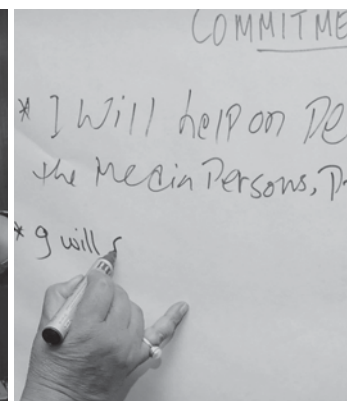 COMMITME
* I Will help on De
the Media Persons, Pr
* I will s